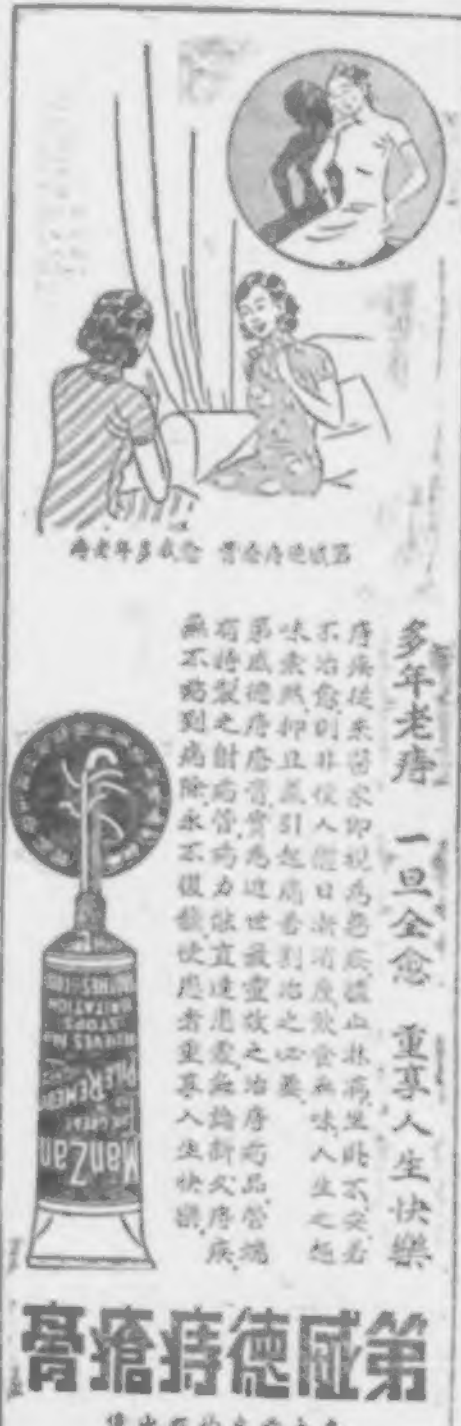 第威德痔瘡膏 愈我多年老痔
多年老痔 一旦全愈 重享人生快樂
痔疾從來醫家即視為惡疾，坐臥不安，若
不治愈則非使人體日漸消瘦，飲食無味，人生之趣
味索然，抑且引起痛苦割治之必要，
第威德痔瘡膏，實為近世最靈效之治痔药品，管端
有特製之射药管，药力能直達患處，無論新久痔疾，
無不路到病除，永不復發，使患者重享人生快樂，
ManZan
GREAT
PILE REMEDY
RELIEVES
STOPS
IRRITATION
SOOTHES
第威德痔瘡膏